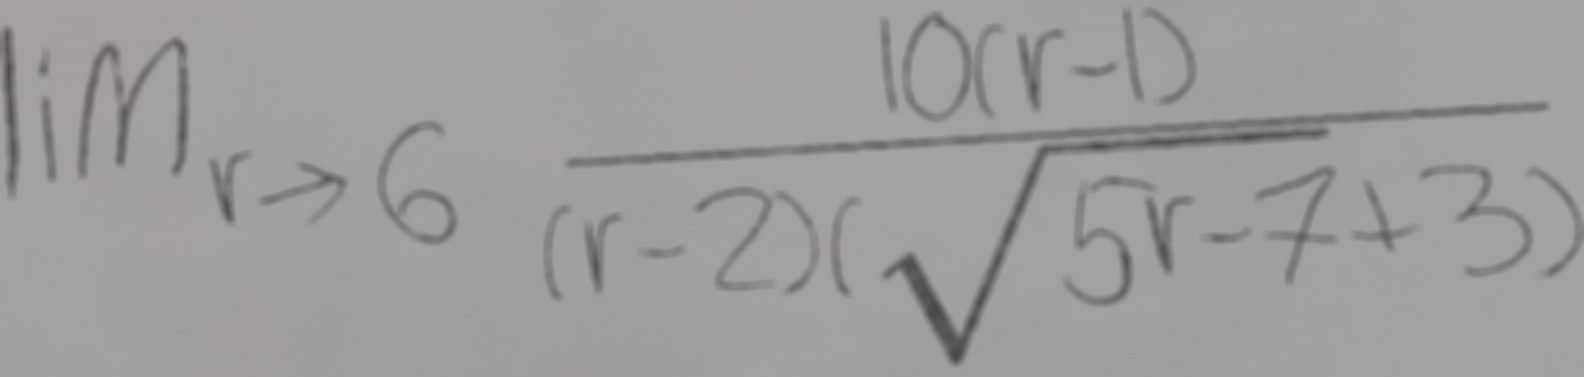 lim_{r→6} \frac{10(r-1)}{(r-2)(\sqrt{5r-7}+3)}